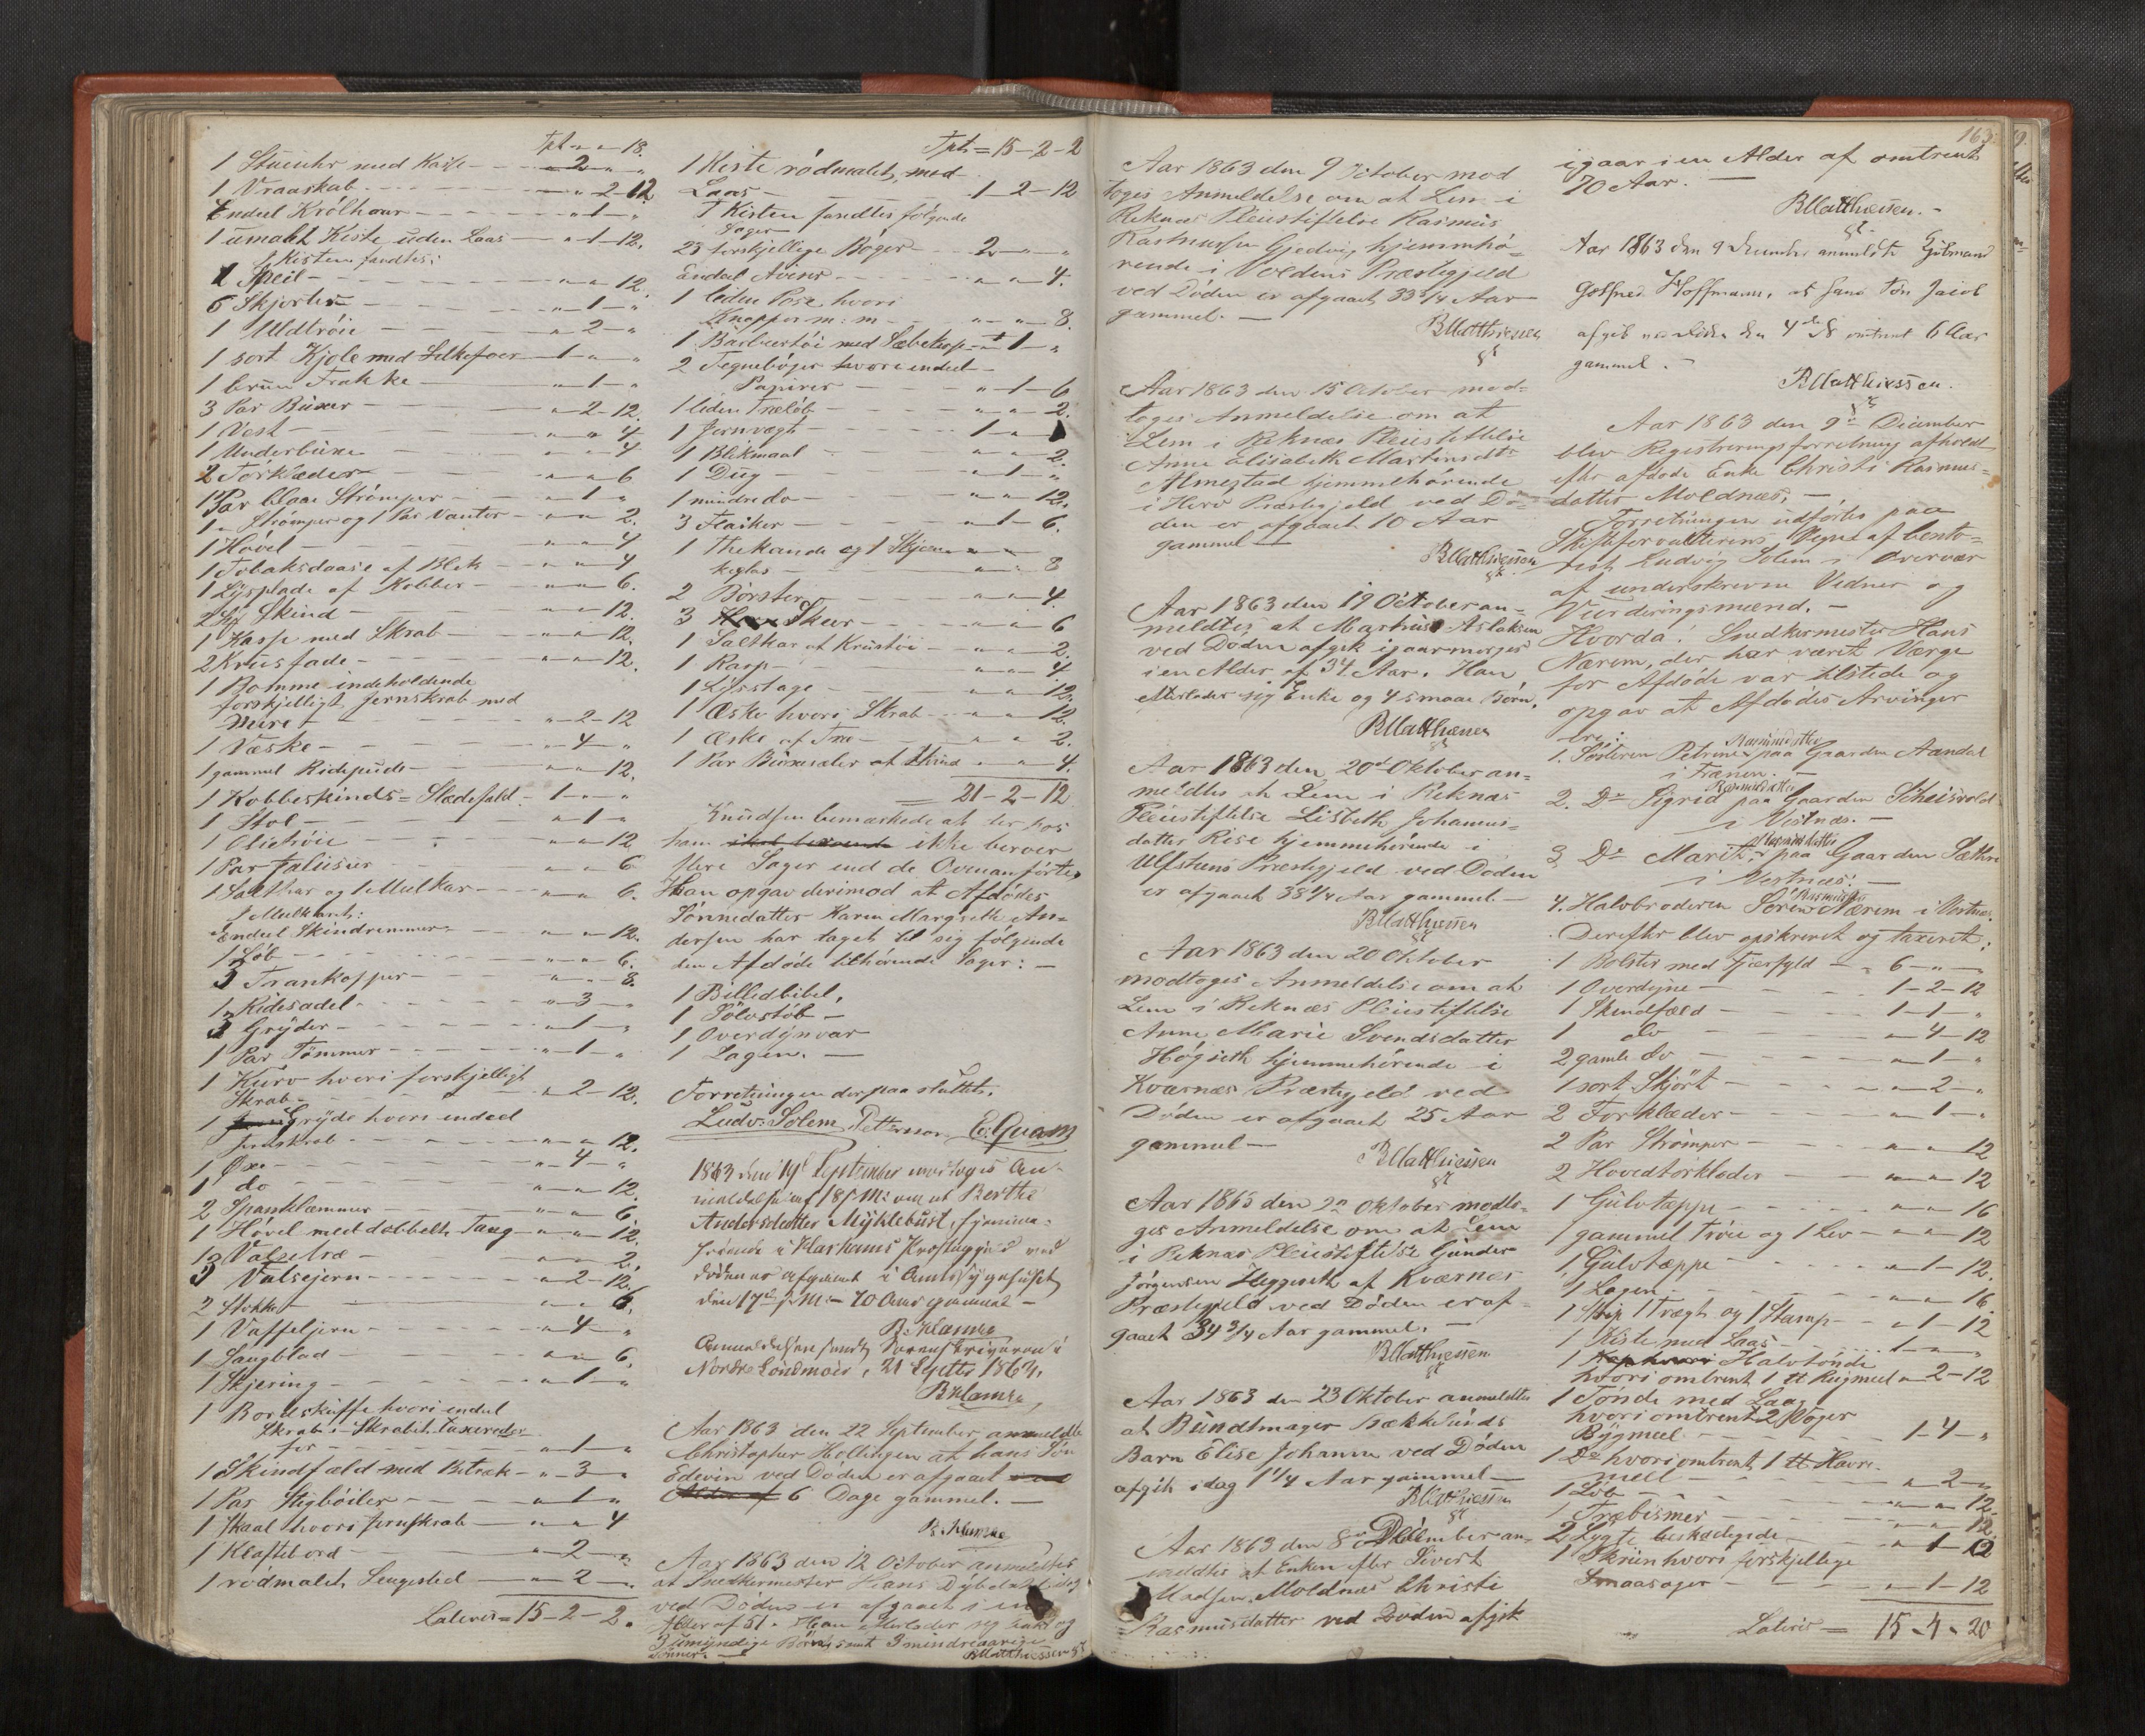 Tpt " - " - 18.
1 Stueuhr med Kasse - 2 - "
1 Vraaskab - " - 2 - 12
Endeel Krølhaar - " - 1 - "
1 umalt Kiste uden Laas - " - 1 - 12.
I Kisten fandtes:
1 Speil - " - " - 12.
6 Skjorter - " - 1 - "
1 Uldtrøie - " - 2 - "
1 sort Kjole med Silkefoer - 1 - " - "
1 bruun Frakke - " - 1 - "
3 Par Buxer - " - 2 - 12.
1 Vest - " - " - 4
1 Underbuxe - " - " - 4
2 Tørklæder - " - " - 6
1 Par blaae Strømper - " - 1 - "
1 " Strømper og 1 Par Vanter - " - " - 2.
1 Høvel - " - " - 4
1 Tobaksdaase af Blik - " - " - 4
1 Lysplade af Kobber - " - " - 6.
2 Skind - " - " - 12.
1 Kasse med Skrab - " - " - 12.
2 Kruusfade - " - " - 12.
1 Bomme indeholdende
forskjelligt Jernskrab med
Meret - " - 2 - 12
1 Væske - " - 4 - "
1 gammel Ridepude - " - " - 12.
1 Kobbeskinds-Slædefæld - 1 - " - "
1 Stol - " - 1 - "
1 Olietrøie - " - " - 12
1 Par - " - " - 6
1 Saltkar og 1 Mulkar - " - " - 6.
I Mulkaret:
Endeel Skindremmer - " - " - 12.
1 Løb - " - " - 6.
3 Trankopper - " - " - 8.
1 Ridesadel - " - 3 - "
3 Gryder - " - 1 - "
1 Par Tømmer - " - 1 - "
1 Kurv hvori forskjelligt
Skrab - " - 2 - 12.
1 Gryde hvori endeel
Jernskrab - " - " - 12.
1 Øxe - " - 4 - "
1 do - " - " - 12.
2 Spanklæmmer - " - " - 6
1 Høvel med dobbelt Tang - " - " - 12.
Valsetræ - " - " - 2.
3 Valsejern - " - 2 - 12.
2 Stokke - " - " - 6.
1 Vaffeljern - " - 4 - "
1 Saugblad - " - " - 6.
1 Skjering - " - 1 - "
1 Bordskuffe hvori endeel
Skrab. Skrabet taxeredes
for - " - 1 - "
1 Skindfæld med Betræk - " - 3 - "
1 Par Stigbøiler - " - 1 - "
1 Skaal hvori Jernskrab - " - " - 4
1 Klaffebord - " - 2 - "
1 rødmalet Sengested - " - 2 - "
Lateris = 15 - 2 - 2.
Tpt. = 15 - 2 - 2
1 Kiste rødmalet, med
Laas - 1 - 2 - 12
I Kisten fandtes følgende
Sager
23 forskjellige Bøger - 2 - " - "
Endeel Aviser - " - " - 4.
1 liden Pose, hvori
Knapper m: m - " - " - 8.
1 Barbeertøi med Sæbekop - " - 1 - "
2 Tegnebøger hvori endeel
Papirer - " - 1 - 6
1 liden Træløb - " - " - 2.
1 Jernvægt - 1 - "
1 Blikmaal - " - " - 2.
1 Dug - " - 1 - "
1 mindre do - " - " - 12.
3 Flasker - " - 1 - 6.
1 Thekande og 1 Skjæn
keglas - " - " - 8
2 Børster - " - " - 4.
3 Skeer - " - " - 6
1 Saltkar af Kruustøi - " - " - 2.
1 Rasp - " - " - 4
1 Lysstage - " - " - 12.
1 Æske hvori Skrab - " - " - 12.
1 Æske af Træ - " - " - 2.
1 Par Buxeseler af Skind - " - " - 4.
21 - 2 - 12
Knudsen bemærkede at der hos
ham ikke beroer
flere Sager end de Ovenanførte.
Han opgav derimod at Afdødes
Sønnedatter Karen Margrethe An-
dersen har taget til sig følgende
den Afdøde tilhørende Sager: -
1 Billedbibel,
1 Sølvstøb -
1 Overdynvar
1 Lagen. -
Forretningen derpaa sluttet.
Ludv: Solem Petterson E: Quam
1863 den 19de September modtoges An-
meldelse af 18 d. M: om at Berthe
Andersdatter Myklebust, hjemme-
hørende i Harhams Præstegjeld ved
Døden er afgaaet i Amtssygehuset
den 17de d. M: - 70 Aar gammel -
B. Klamke
Anmeldelsen sendt Sorenskriveren i
Nordre Søndmøre, 21 Septbr 1863.
B Klamke
Aar 1863 den 22 September anmeldte
Christopher Hellingen at hans Søn
Edevin ved Døden er afgaaet
6 Dage gammel. -
B. Klamke
Aar 1863 den 12 October anmeldtes
at Snedkermester Hans Dybdahl idag
ved Døden er afgaaet i en
Alder af 51. Han efterlader sig Enke og
3 umyndige Børn samt 3 mindreaarige
Sønner. -
BMatthiessen
163.
Aar 1863 den 9 October mod
toges Anmeldelse om at Lem i
Reknæs Pleiestiftelse Rasmus
Rasmussen Gjedvig hjemmehø-
rende i Voldens Præstegjeld
ved Døden er afgaaet 33 3/4 Aar
gammel. -
BMatthiessen
Aar 1863 den 15 October mod-
toges Anmeldelse om at
Lem i Reknæs Pleiestiftelse
Anne Elisabeth Martinsdtr
Almestad hjemmehørende
i Herø Præstegjeld ved Dø-
den er afgaaet 10 Aar
gammel -
BMatthiessen
Aar 1863 den 19 October an-
meldtes, at Marthus Aslaksen
ved Døden afgik igaarmorges
i en Alder af 34 Aar. Han
efterlader sig Enke og 4 smaae Børn.
BMatthiessen
Aar 1863 den 20de Oktober an-
meldtes at Lem i Reknæs
Pleiestiftelse Lisbeth Johannes-
datter Rise hjemmehørende i
Ulfsteens Præstegjeld ved Døden
er afgaaet 38 1/4 Aar gammel. -
BMatthiessen
Aar 1863 den 20 Oktober
modtoges Anmeldelse om at
Lem i Reknæs Pleiestiftelse
Anne Marie Svendsdatter
Høgseth hjemmehørende i
Kværnæs Præstegjeld ved
Døden er afgaaet 25 Aar
gammel -
BMatthiessen
Aar 1863 den 22 Oktober modto-
ges Anmeldelse om at Lem
i Reknæs Pleiestiftelse Gunder
Jørgensen Heggeseth af Kværnes
Præstegjeld ved Døden er af-
gaaet 34 3/4 Aar gammel. -
BMatthiessen
Aar 1863 den 23 Oktober anmeldtes
at Bundtmager Brækkesunds
Barn Elise Johanne ved Døden
afgik idag 1 1/4 Aar gammel -
BMatthiessen
Aar 1863 den 8de December an-
meldtes at Enken efter Sivert
Madsen Moldnæs Christi
Rasmusdatter ved Døden afgik
igaar i en Alder af omtrent
70 Aar. -
BMatthiessen. -
Aar 1863 den 9 December anmeldte
Gottfried Hoffmann, at hans Søn Jacob
afgik ved Døden den 4de ds omtrent 6 Aar
gammel. -
BMatthiessen.
Aar 1863 den 9de December
blev Registreringsforretning afholdt
efter afdøde Enke Christi Rasmus-
datter Moldnæs. -
Forretningen udførtes paa
Skifteforvalterens Vegne af Cento-
rist Ludvig Solem i Overvær
af underskrevne Vidner og
Vurderingsmænd. -
Hvorda! Snedkermester Hans
Nærem, der har været Værge
for Afdøde var tilstede og
opgav at Afdødes Arvinger
ere:
1. Søsteren Petrine Rasmusdatter paa Gaarden Aandal
i Frænen. -
2. Do Sigrid Rasmusdatter paa Gaarden Scheisvold
i Vestnæs. -
3. Do Marit Rasmusdatter paa Gaarden Sæthre
i Vestnæs. -
4. Halvbroderen Søren Rasmussen Nærem i Vestnæs.
Derefter blev opskrevet og taxeret:
1 Bolster med Fjærfyld - " 6 - " - "
1 Overdyne - 1 - 2 - 12
1 Skindfæld - 1 - 1 - "
1 do - " - 4 - 12
2 gamle do - " - 1 - "
1 sort Skjørt - " - 2 - "
2 Forklæder - " - 1 - "
2 Par Strømper - " - " - 12
2 Hovedtørklæder - " - " - 12
1 Gulvtæppe - " - " - 16
1 gammel Trøie og 1 Lev - " - " - 12
1 Gulvtæppe - " - 1 - 12.
1 Lagen - " - " - 16.
1 Strip 1 Tragt og 1 Stamp - " - 1 - 12
1 Kiste med Laas - 1 - " - "
1 Halvtønde
hvori omtrent 1 tt Rugmeel " - 2 - 12
1 Tønde med Laag
hvori omtrent 2 Voger
Bygmeel - 1 - 4 - "
1 Do hvori omtrent 1 tt Havre-
meel - " - 2 - "
1 Løb - " - " - 12.
1 Træbismer - " - " - 12.
2 Lygte beskadigede - " - 1 - 12
1 Skriin hvori forskjellige
Smaasager - " - 1 - 12
Lateris = 15 - 4 - 20